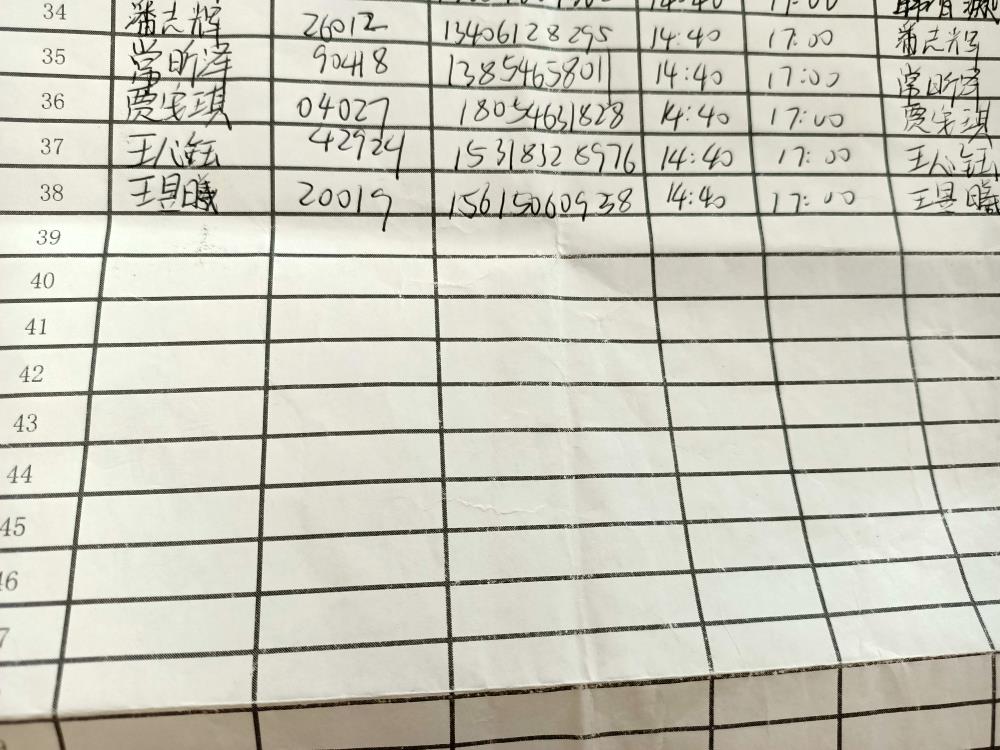 34 潘志辉 26012 13406128295 14:40 17:00 潘志辉
35 常昕泽 90418 13854658011 14:40 17:00 常昕泽
36 贾宝琪 04027 18054631828 14:40 17:00 贾宝琪
37 王心钰 42924 15318328976 14:40 17:00 王心钰
38 王昱曦 20019 15615060938 14:40 17:00 王昱曦
39
40
41
42
43
44
45
46
7